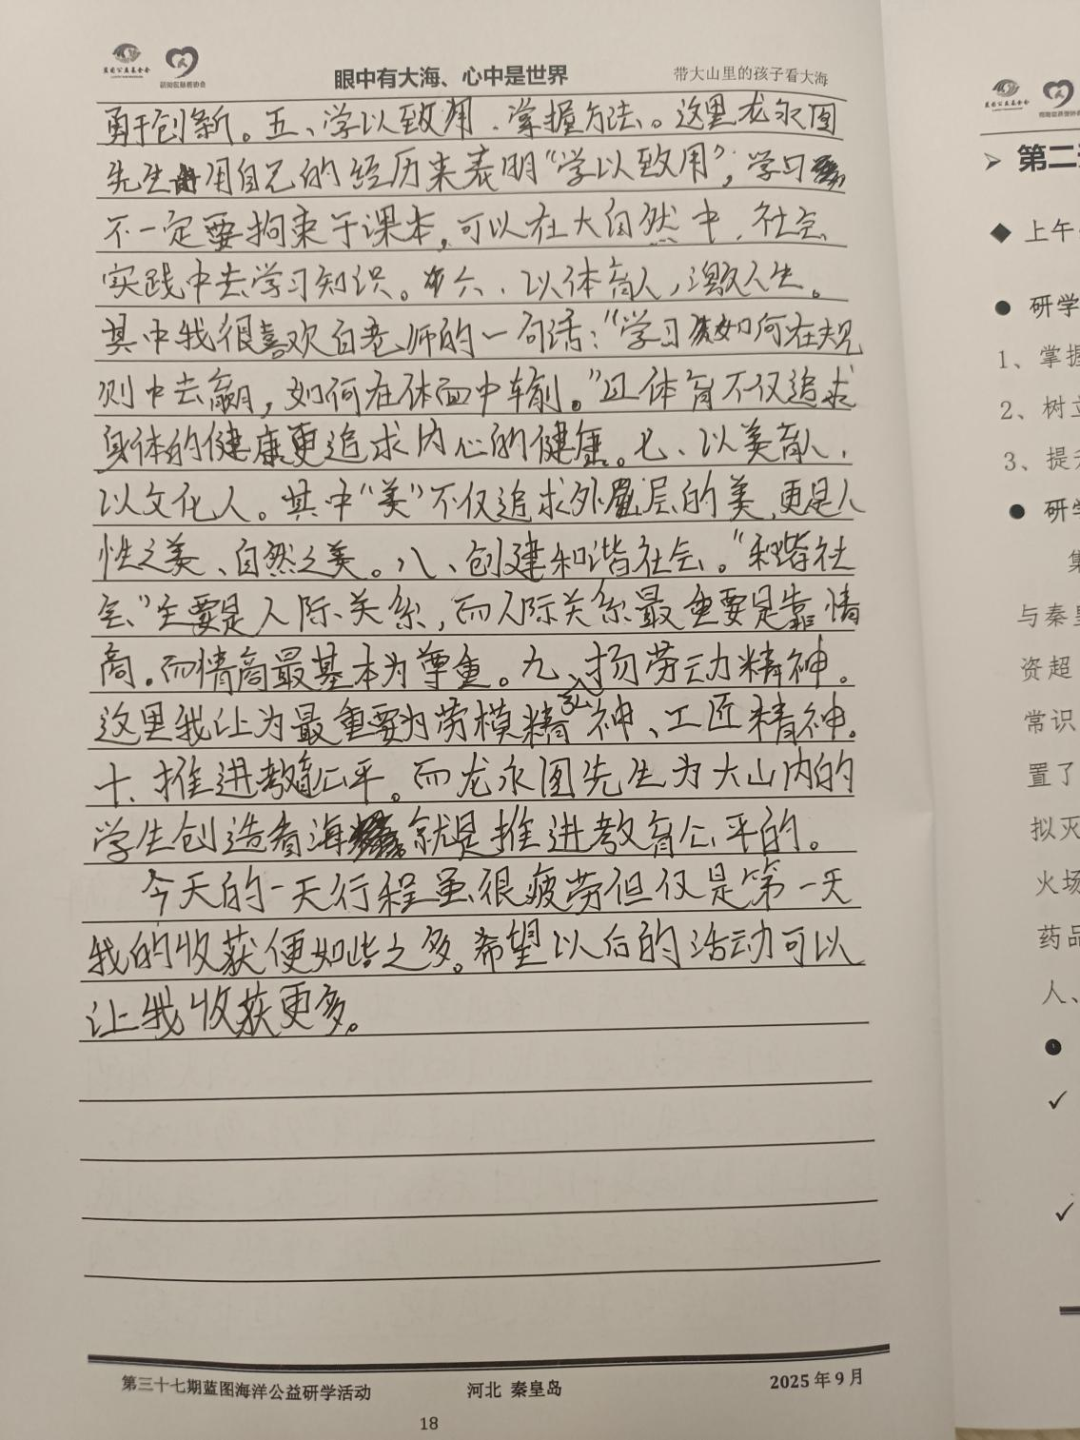 眼中有大海、心中是世界
带大山里的孩子看大海
勇于创新。五、学以致用、掌握方法。这里龙永图
先生用自己的经历来表明“学以致用”，学习
不一定要拘束于课本，可以在大自然中、社会
实践中去学习知识。六、以体育人，激励人生。
其中我很喜欢白老师的一句话：“学习如何在规
则中去赢，如何在体面中输。”且体育不仅追求
身体的健康更追求内心的健康。七、以美育人，
以文化人。其中“美”不仅追求外层的美，更是人
性之美、自然之美。八、创建和谐社会。“和谐社
会”主要是人际关系，而人际关系最重要是靠情
商。而情商最基本为尊重。九、弘扬劳动精神。
这里我认为最重要为劳模精神、工匠精神。
十、推进教育公平。而龙永图先生为大山内的
学生创造看海就是推进教育公平的。
今天的一天行程虽很疲劳但仅是第一天
我的收获便如此之多。希望以后的活动可以
让我收获更多。
第三十七期蓝图海洋公益研学活动
河北 秦皇岛
2025年9月
18
第二
上午
研学
1、掌握
2、树立
3、提升
研学
与秦皇
资超
常识
置了
拟灭
火场
药品
人、